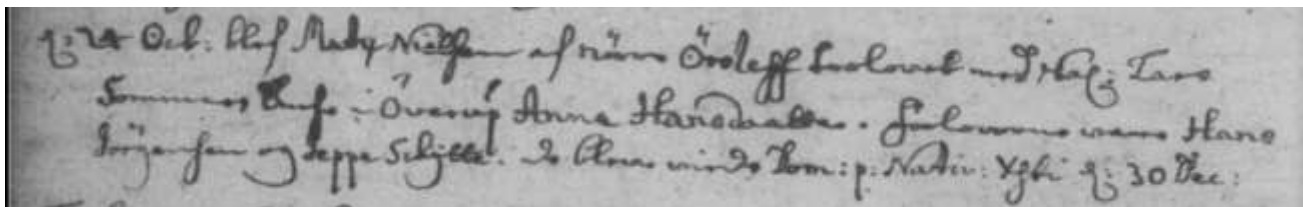 d: 24 Oct: blef Mads Nielsen af Nörre Örsleff trolovet med
Enke i Överup Anna Hansdatter. Forloverne vare Hans
Jörgensen og Jeppe Schÿtte. de bleve viede Dom: p: Nativ: Xsti d: 30 Dec: